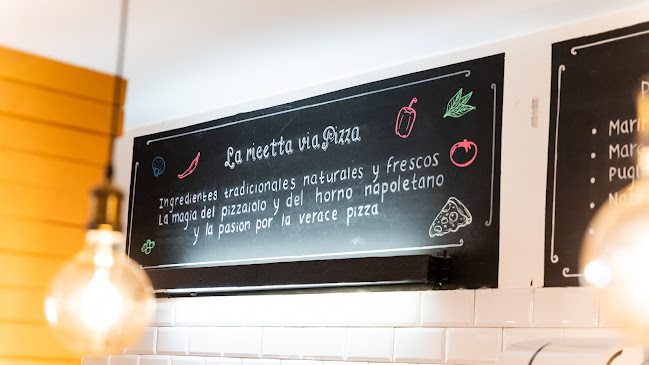 La ricetta via Pizza
Ingredientes tradicionales naturales y frescos
La magia del pizzaiolo y del horno napoletano
y la pasion por la verace pizza